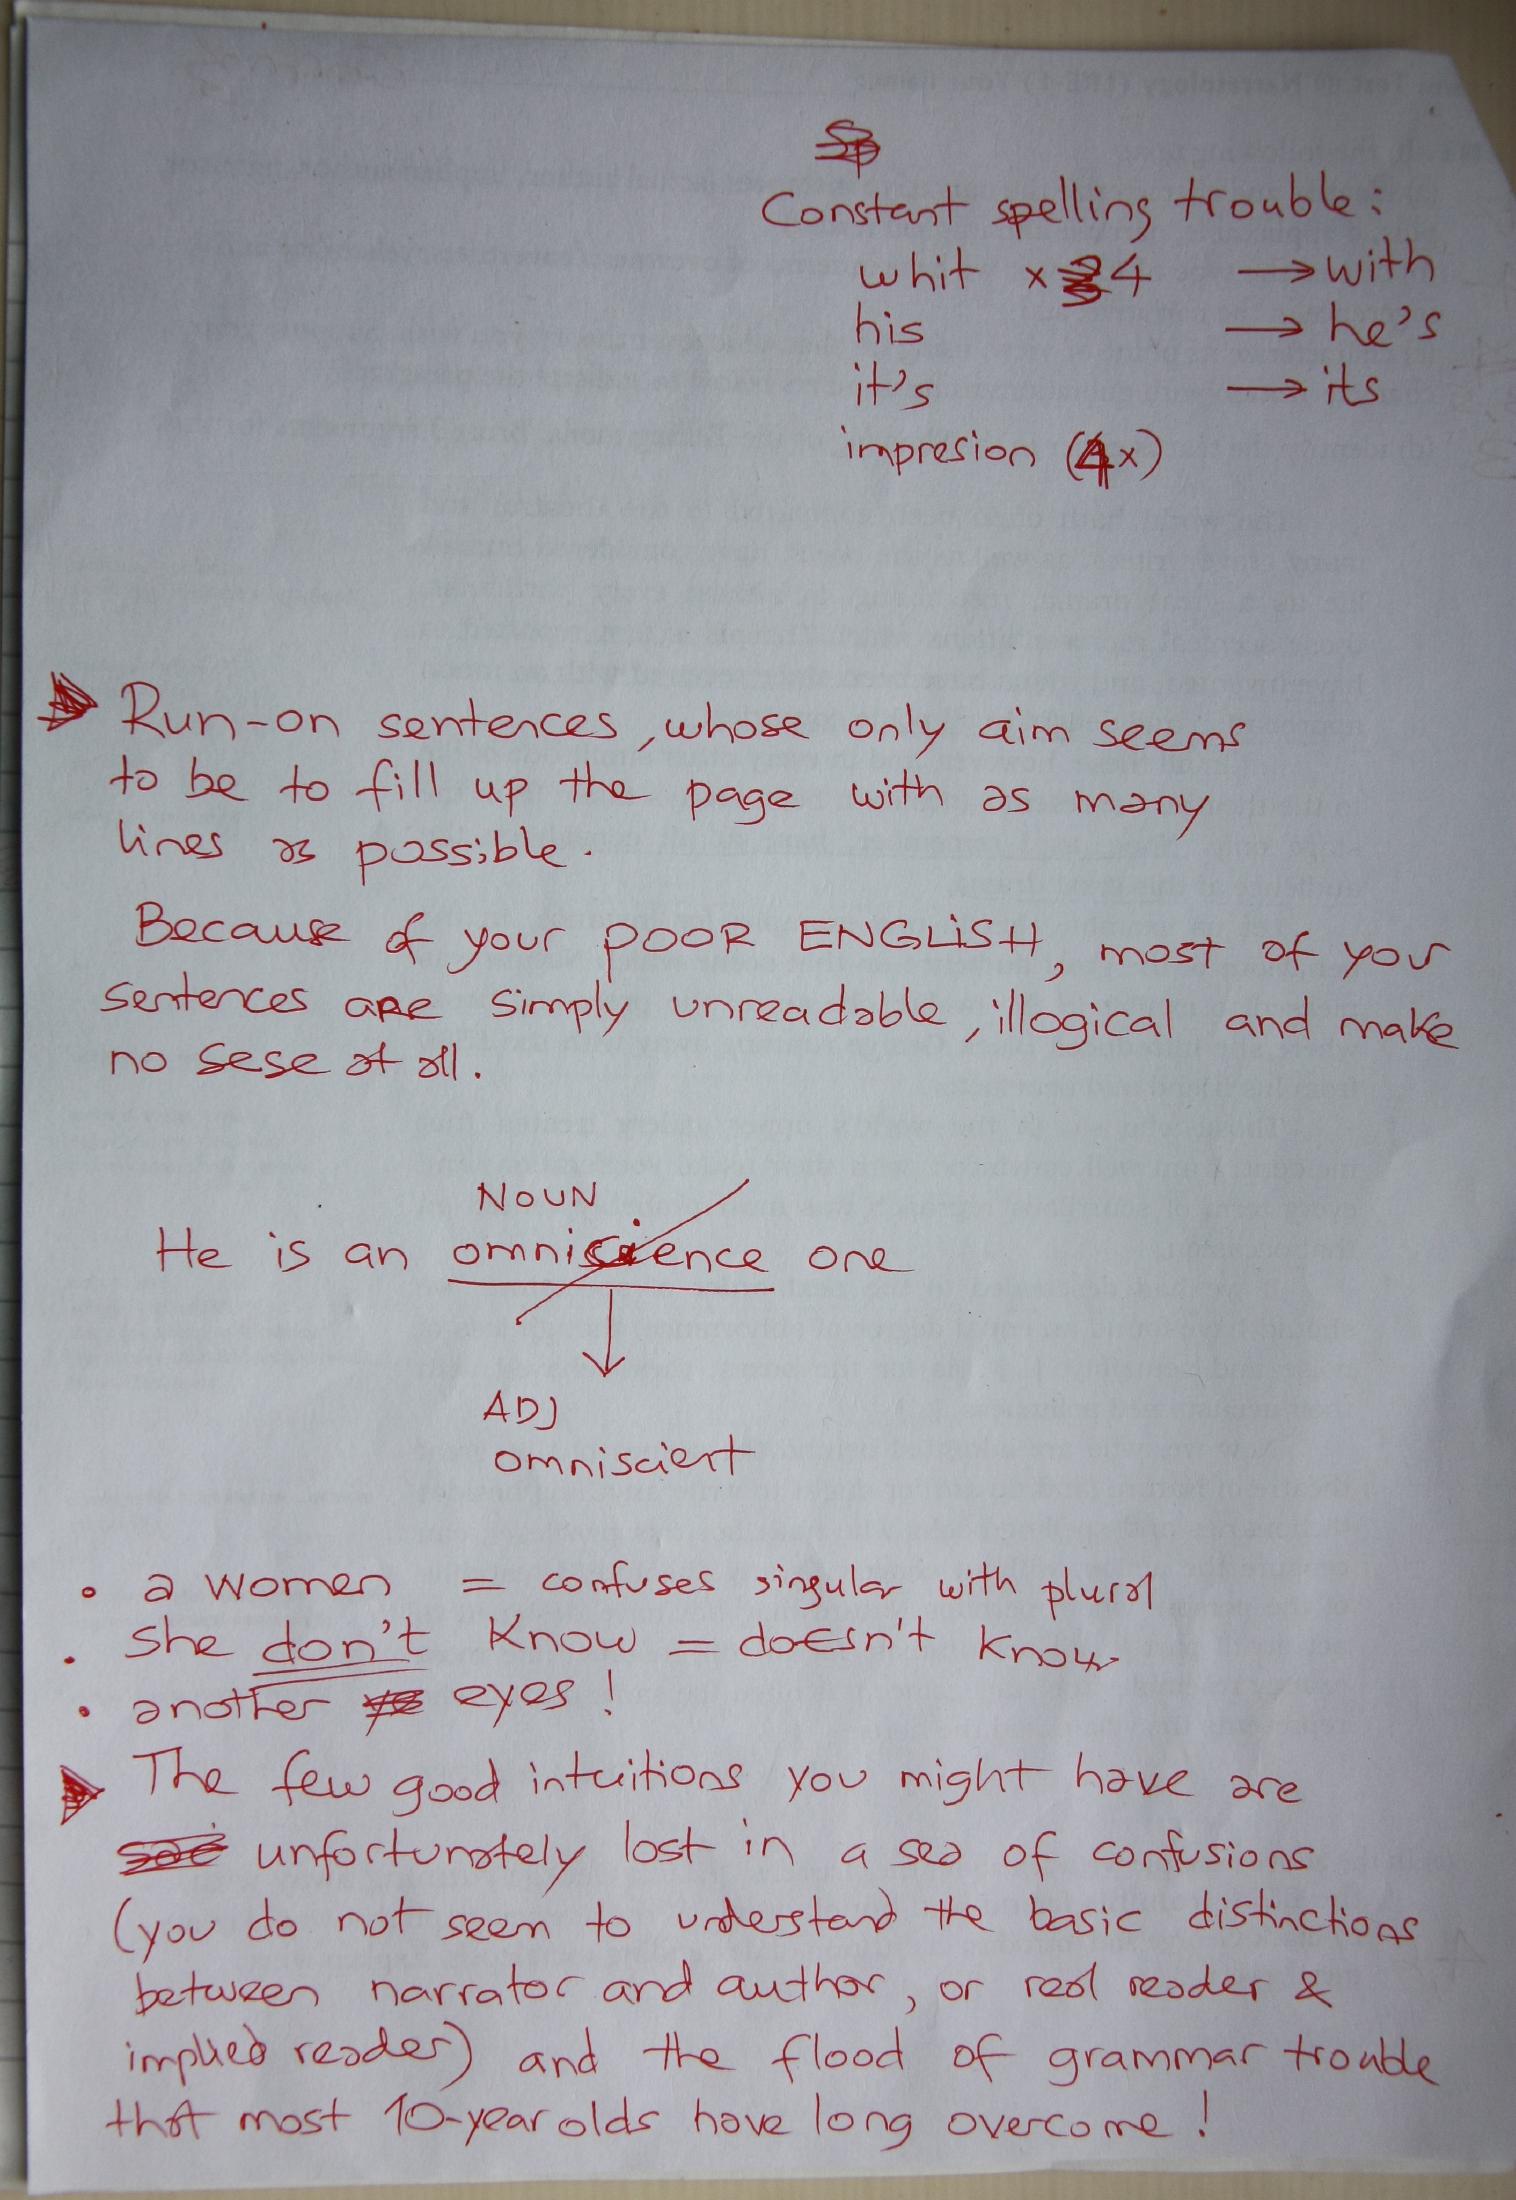 Constant spelling trouble:
whit x 4 → with
his → he's
it's → its
impresion (4x)
Run-on sentences, whose only aim seems
to be to fill up the page with as many
lines as possible.
Because of your POOR ENGLISH, most of your
sentences are simply unreadable, illogical and make
no sese at all.
NOUN
He is an omniscience one
ADJ
omniscient
• a women = confuses singular with plural
• she don't know = doesn't know
• another eyes!
The few good intuitions you might have are
unfortunately lost in a sea of confusions
(you do not seem to understand the basic distinctions
between narrator and author, or real reader &
implied reader) and the flood of grammar trouble
that most 10-year olds have long overcome!